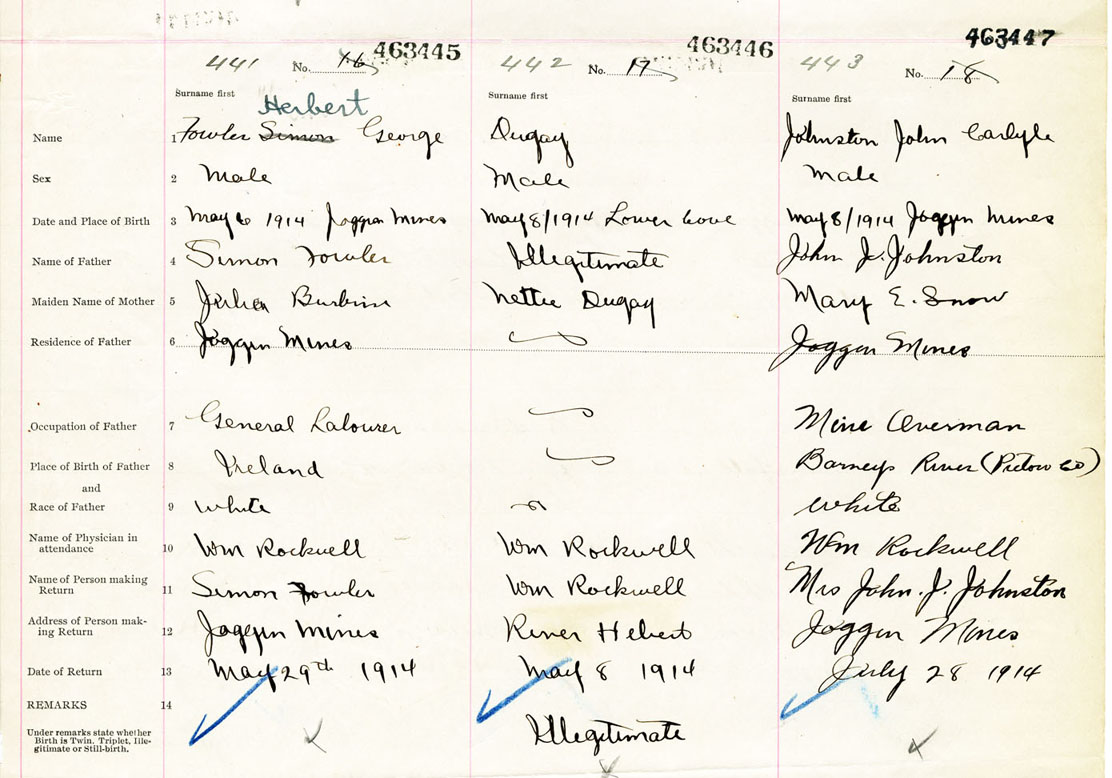 463445 463446 463447
441 No. 16 442 No. 17 443 No. 18
Surname first Surname first Surname first
Herbert
Name 1 Fowler Simon George Dugay Johnston John Carlyle
Sex 2 Male Male Male
Date and Place of Birth 3 May 6 1914 Joggin Mines May 8/1914 Lower Cove May 8/1914 Joggin Mines
Name of Father 4 Simon Fowler Illegitimate John J. Johnston
Maiden Name of Mother 5 Julia Burbine Nettie Dugay Mary E. Snow
Residence of Father 6 Joggin Mines Joggin Mines
Occupation of Father 7 General Labourer Mine Overman
Place of Birth of Father 8 Ireland Barneys River (Pictou Co)
and
Race of Father 9 White White
Name of Physician in
attendance 10 Wm Rockwell Wm Rockwell Wm Rockwell
Name of Person making
Return 11 Simon Fowler Wm Rockwell Mrs John. J. Johnston
Address of Person mak-
ing Return 12 Joggin Mines River Hebert Joggin Mines
Date of Return 13 May 29th 1914 May 8 1914 July 28 1914
REMARKS 14
Under remarks state whether
Birth is Twin, Triplet, Ille-
gitimate or Still-birth. Illegitimate